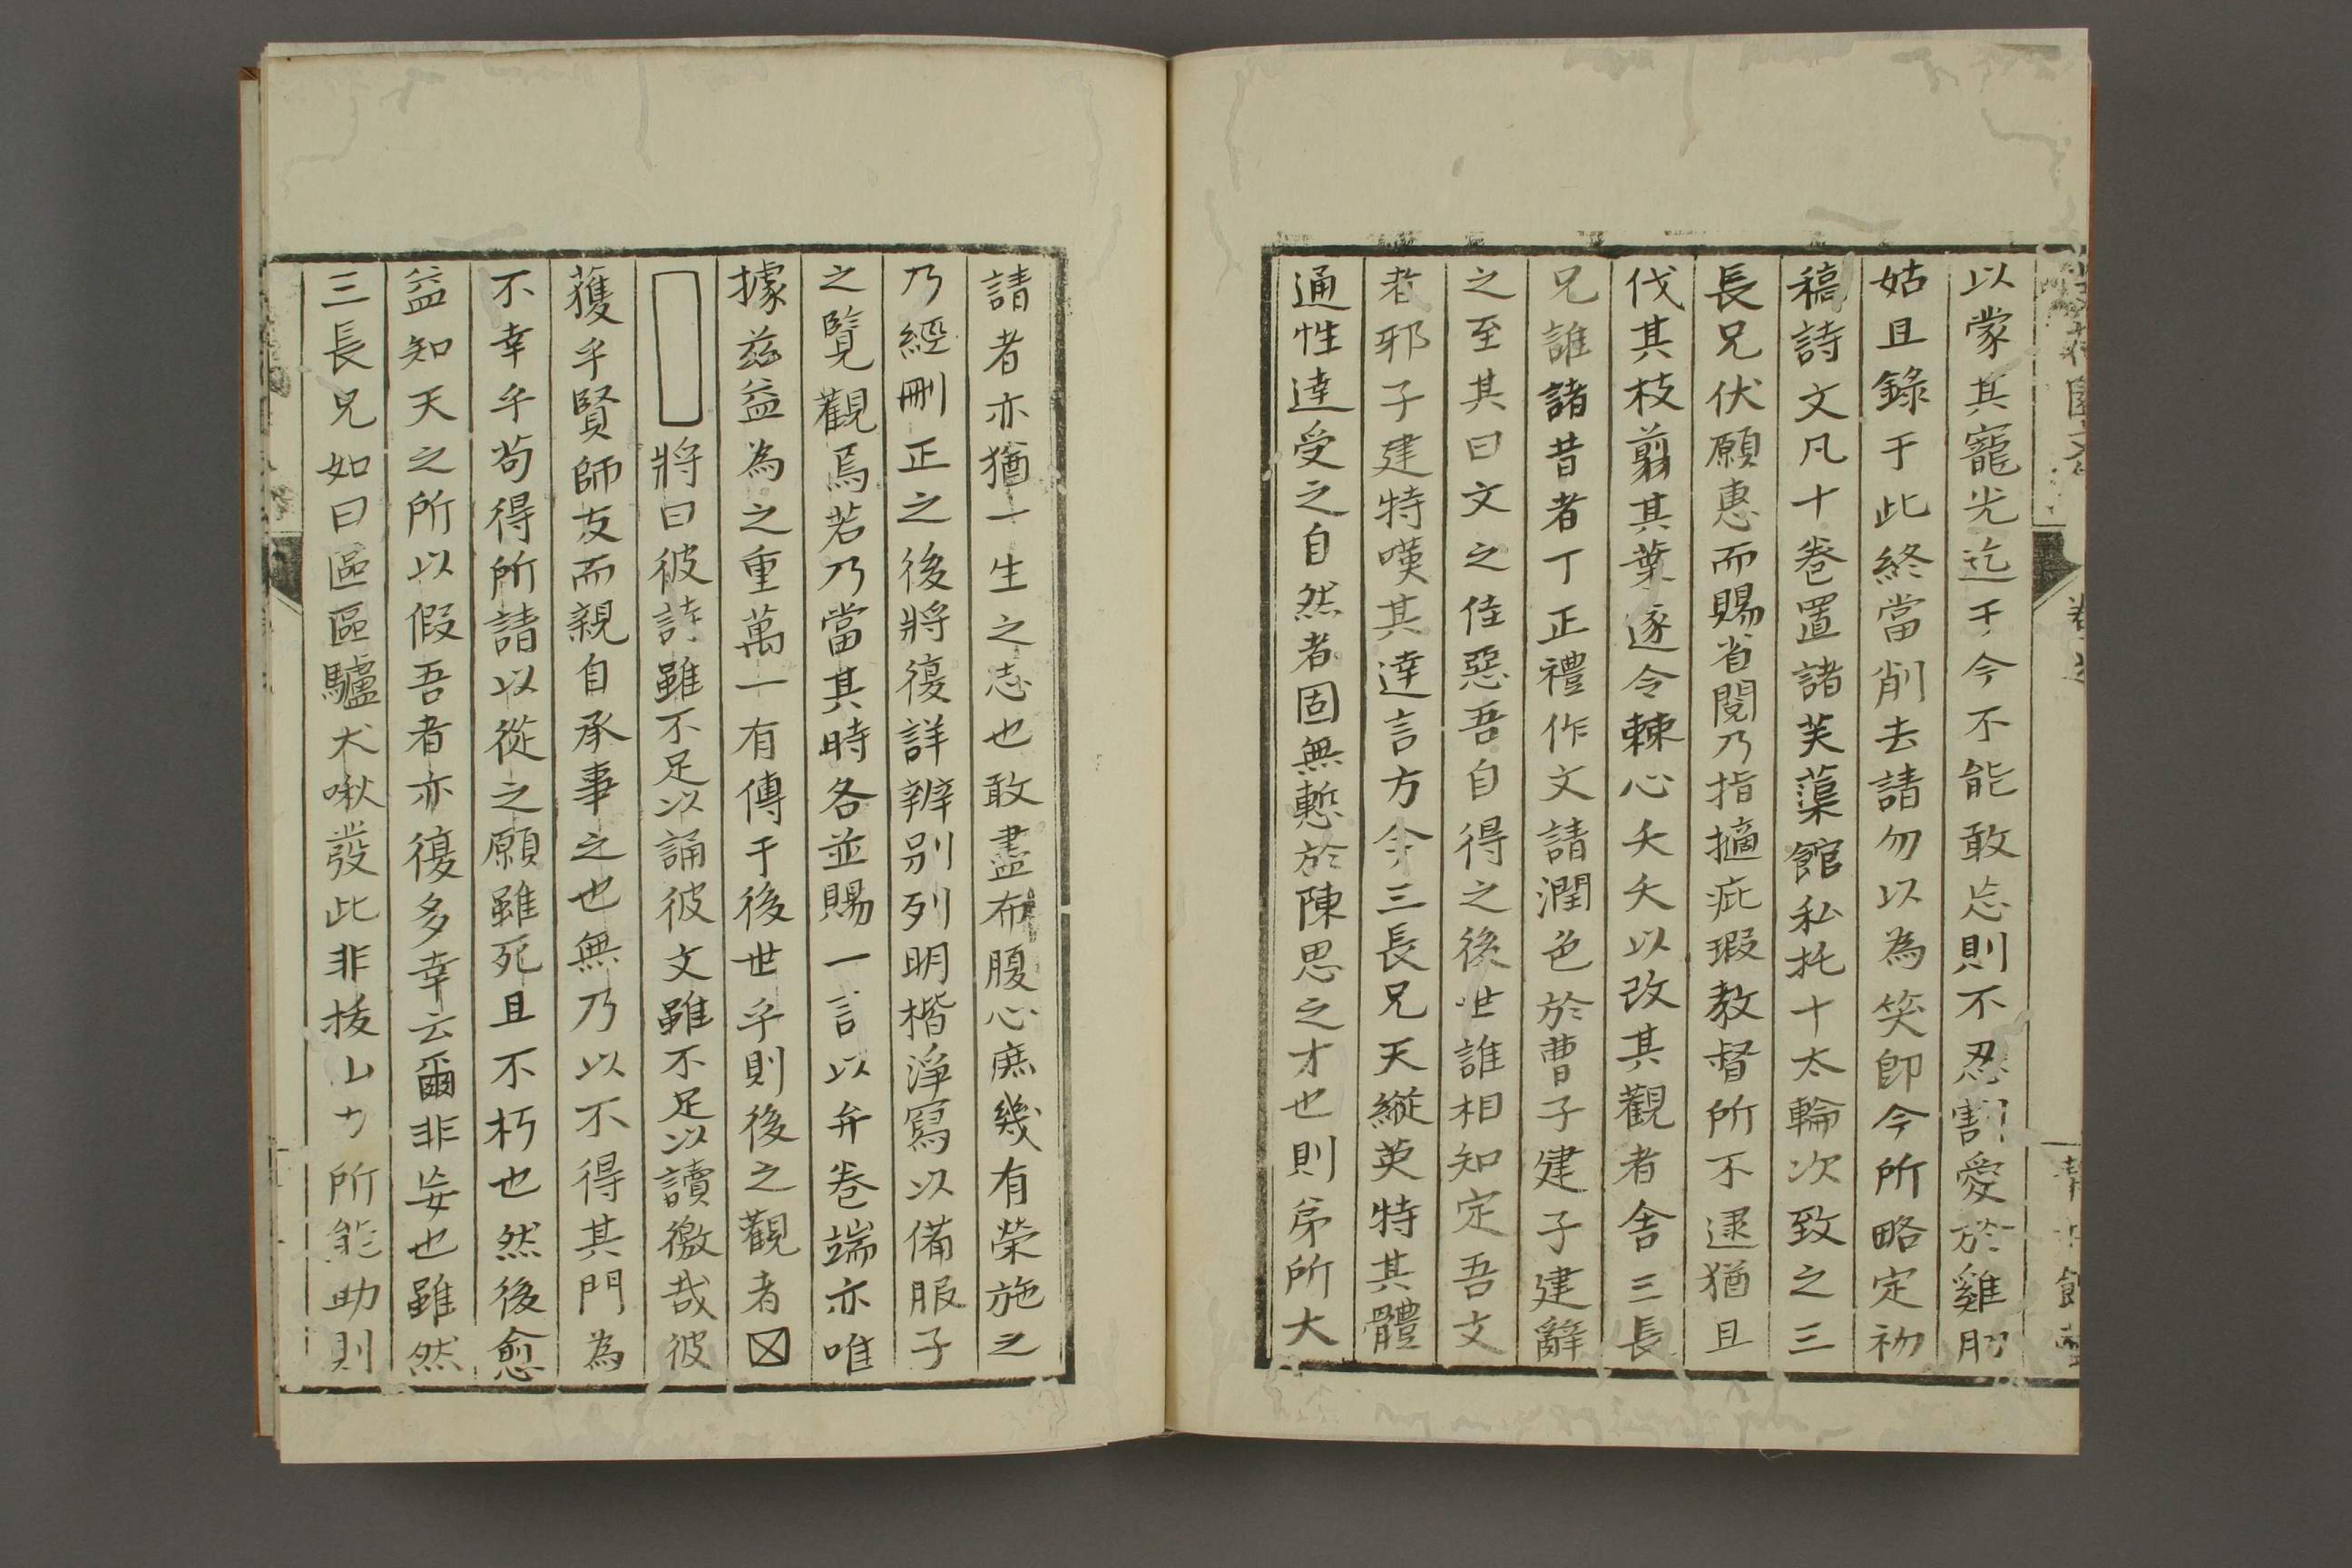 以蒙其寵光迄于今不能敢忘則不忍割愛於雞肋
姑且錄于此終當削去請勿以為笑即今所略定初
稿詩文凡十卷置諸芙蕖館私托十太輪次致之三
長兄伏願惠而賜省閱乃指擿疵瑕教督所不逮猶且
伐其枝翦其葉逐令棘心夭夭以改其觀者舍三長
兄誰諸昔者丁正禮作文請潤色於曹子建子建辭
之至其曰文之佳惡吾自得之後世誰相知定吾文
者邪子建特嘆其達言方今三長兄天縱英特其體
通性達受之自然者固無慙於陳思之才也則弟所大
請者亦猶一生之志也敢盡布腹心庶幾有榮施之
乃經刪正之後將復詳辨別列明楷淨寫以備服子
之覽觀焉若乃當其時各並賜一言以弁卷端亦唯
據茲益為之重萬一有傳于後世乎則後之觀者
將曰彼詩雖不足以誦彼文雖不足以讀徼哉彼
獲乎賢師友而親自承事之也無乃以不得其門為
不幸乎茍得所請以從之願雖死且不朽也然後愈
益知天之所以假吾者亦復多幸云爾非妄也雖然
三長兄如曰區區驢犬啾發此非拔山力所能助則